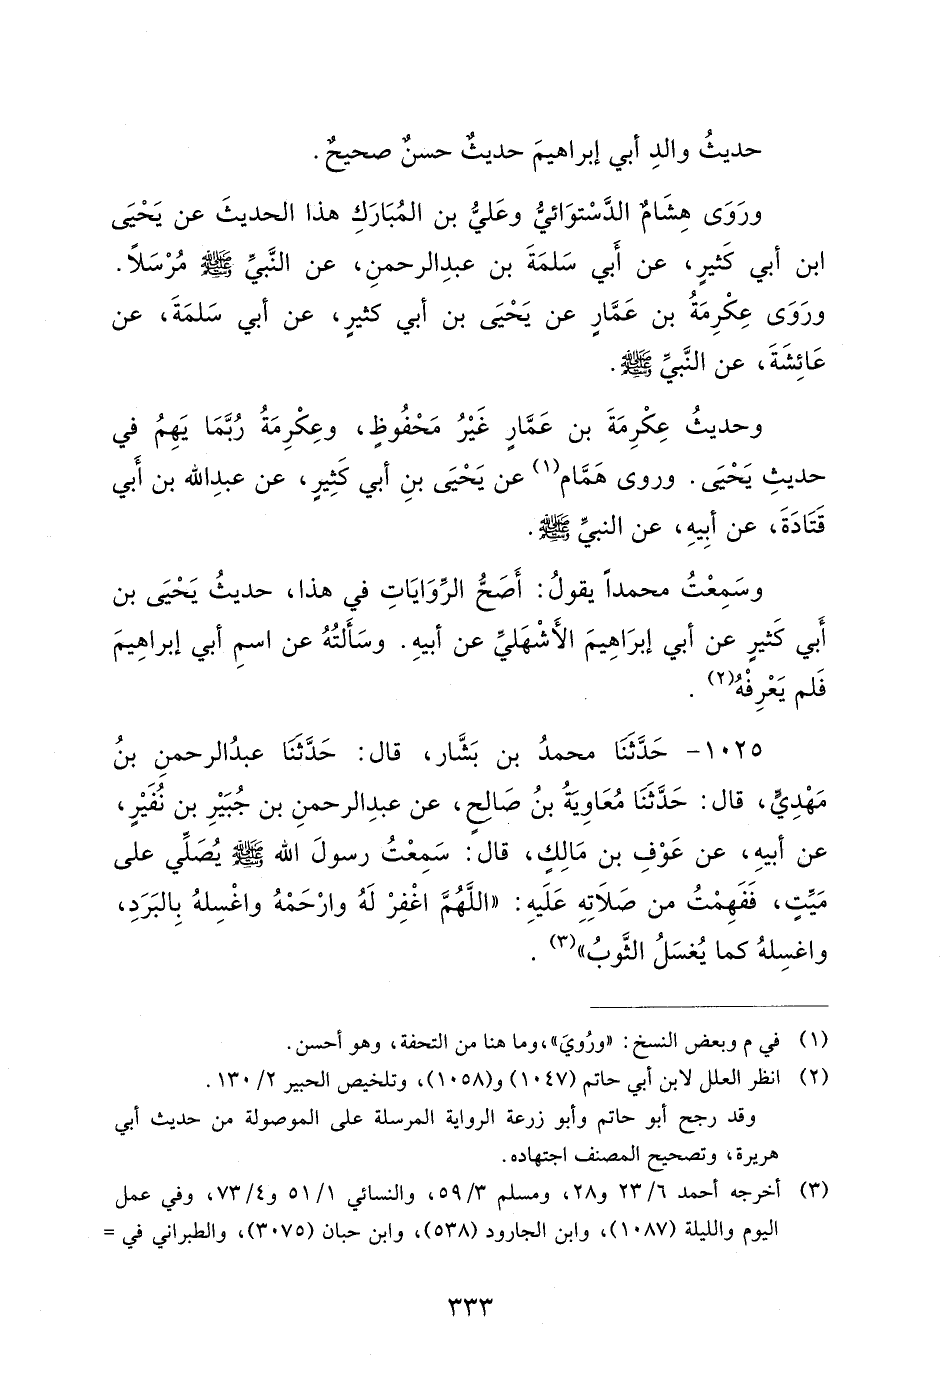 حديثُ والدِ أبي إبراهيمَ حديثٌ حسنٌ صحيحٌ.
ورَوَى هِشَامٌ الدَّسْتوَائيُّ وعَليُّ بن المُبَارَكِ هذا الحديثَ عن يَحْيَى
ابن أبي كَثيرٍ، عن أَبي سَلمَةَ بن عبدِالرحمنِ، عن النَّبيِّ ﷺ مُرْسَلاً.
ورَوَى عِكْرِمَةُ بن عَمَّارٍ عن يَحْيَى بن أبي كثيرٍ، عن أبي سَلمَةَ، عن
عَائِشَةَ، عن النَّبيِّ ﷺ.
وحديثُ عِكْرِمَةَ بن عَمَّارٍ غَيْرُ مَحْفُوظٍ، وعِكْرِمَةُ رُبَّمَا يَهِمُ في
حديثِ يَحْيَى. وروى هَمَّام(١) عن يَحْيَى بنِ أبي كَثِيرٍ، عن عبدِالله بن أَبي
قَتَادَةَ، عن أَبِيهِ، عن النبيِّ ﷺ.
وسَمِعْتُ محمداً يقولُ: أَصَحُّ الرِّوَايَاتِ في هذا، حديثُ يَحْيَى بن
أَبي كَثيرٍ عن أبي إبرَاهِيمَ الأَشْهَليِّ عن أبيهِ. وسَأَلتُهُ عن اسمِ أبي إبراهِيمَ
فَلم يَعْرِفْهُ(٢).
١٠٢٥- حَدَّثَنَا محمدُ بن بَشَّار، قال: حَدَّثَنَا عبدُالرحمنِ بنُ
مَهْدِيٍّ، قال: حَدَّثَنَا مُعَاوِيَةُ بنُ صَالحٍ، عن عبدِالرحمنِ بن جُبَيْرِ بن نُفَيْرٍ،
عن أبيهِ، عن عَوْفِ بن مَالِكٍ، قال: سَمِعْتُ رسولَ الله ﷺ يُصَلِّي على
مَيِّتٍ، فَفَهِمْتُ من صَلَاتِهِ عَلَيهِ: «اللَّهُمَّ اغْفِرْ لَهُ وارْحَمْهُ واغْسِلهُ بِالبَرَدِ،
واغسِلهُ كما يُغسَلُ الثَّوبُ»(٣).
(١) في م وبعض النسخ: «ورُويَ»،وما هنا من التحفة، وهو أحسن.
(٢) انظر العلل لابن أبي حاتم (١٠٤٧) و(١٠٥٨)، وتلخيص الحبير ٢/ ١٣٠.
وقد رجح أبو حاتم وأبو زرعة الرواية المرسلة على الموصولة من حديث أبي
هريرة، وتصحيح المصنف اجتهاده.
(٣) أخرجه أحمد ٦/ ٢٣ و٢٨، ومسلم ٣/ ٥٩، والنسائي ١/ ٥١ و٤/ ٧٣، وفي عمل
اليوم والليلة (١٠٨٧)، وابن الجارود (٥٣٨)، وابن حبان (٣٠٧٥)، والطبراني في =
٣٣٣